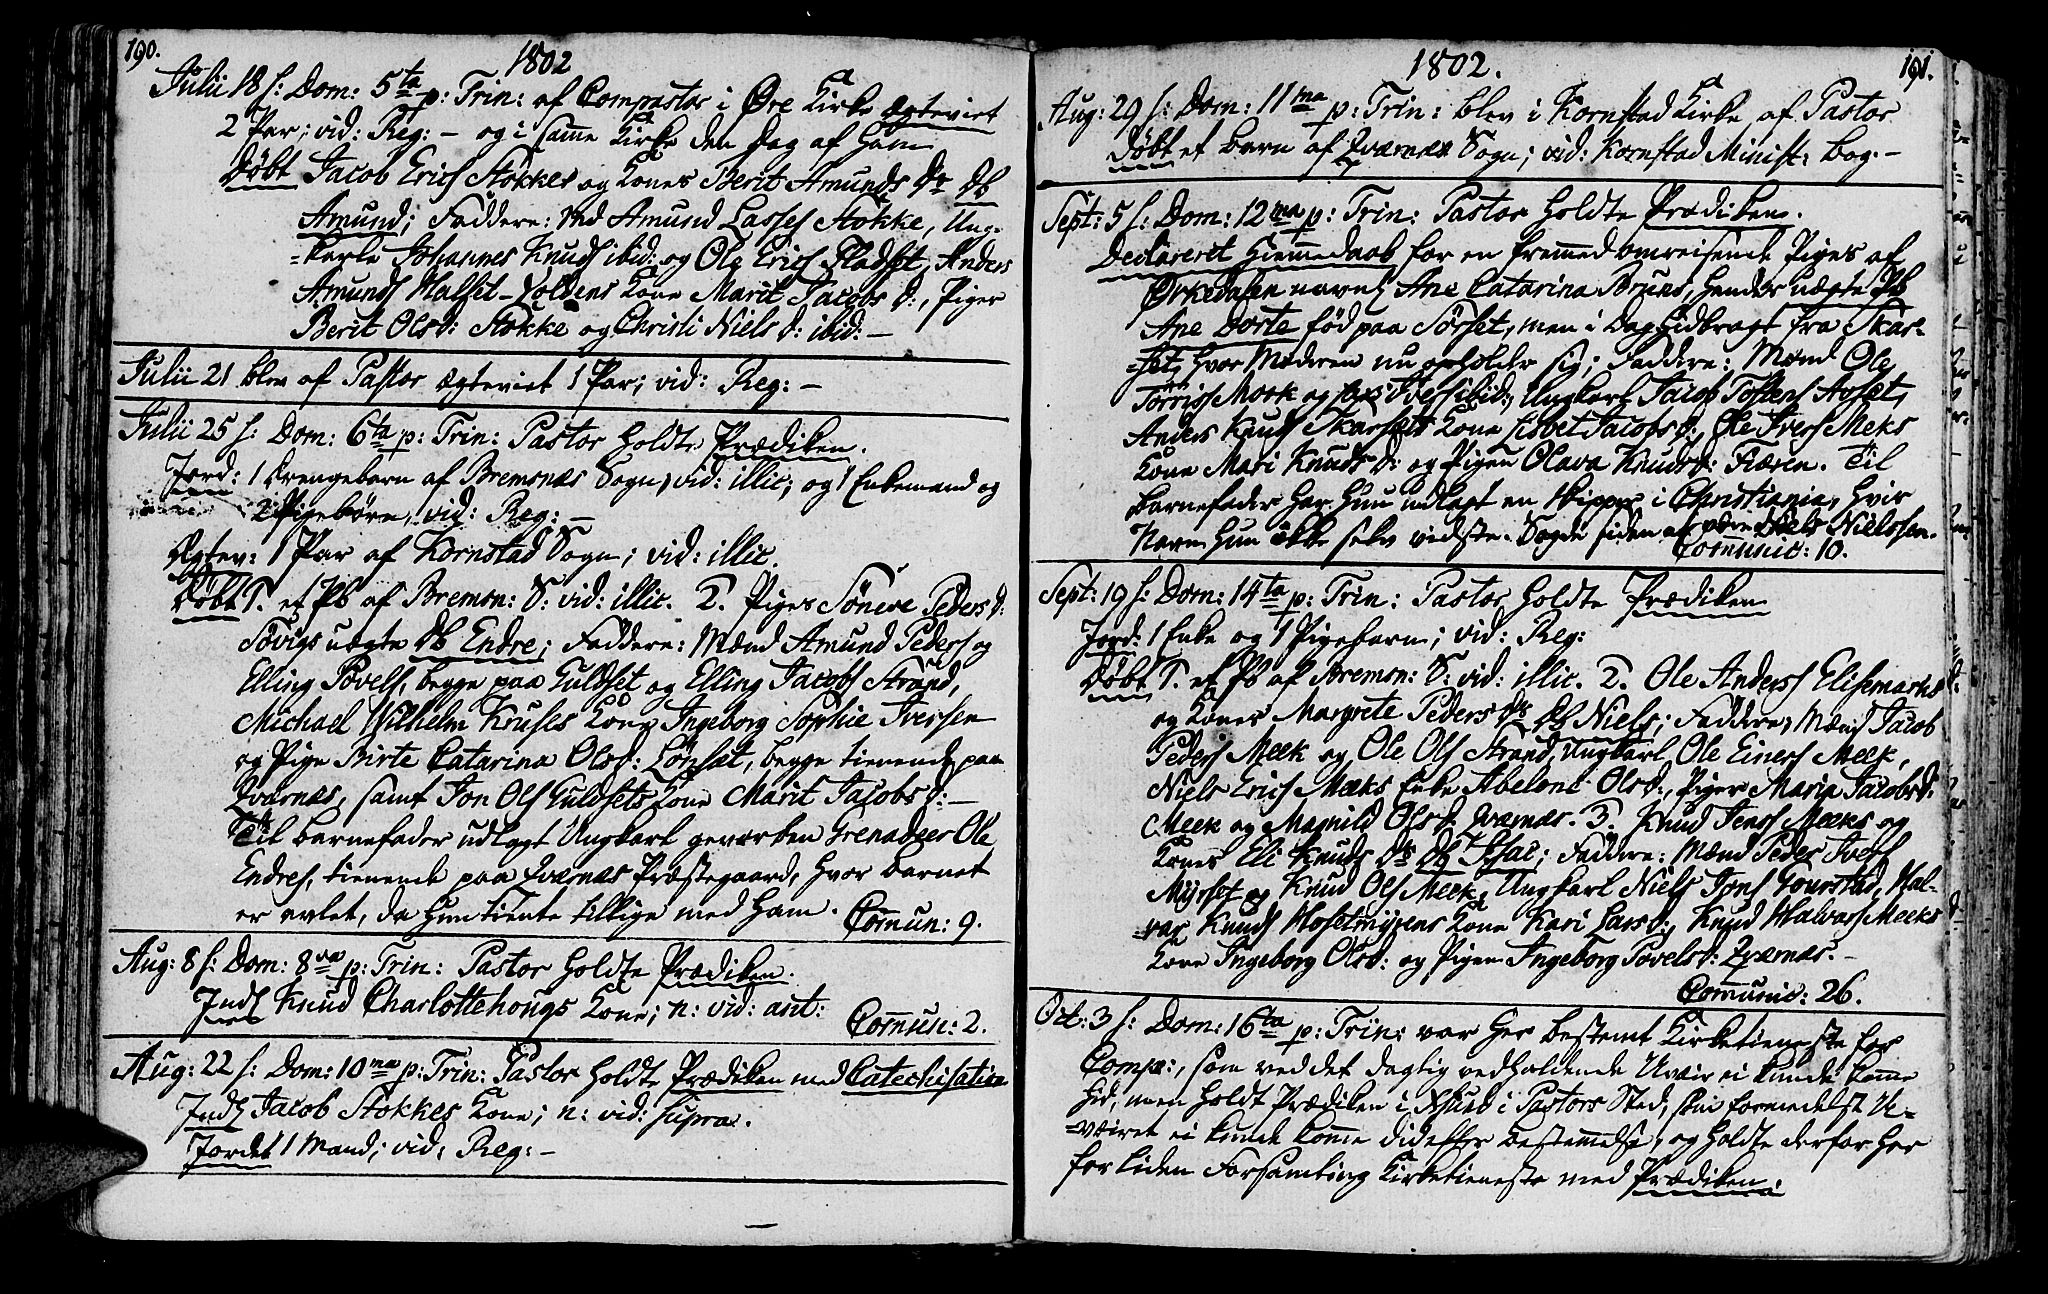 190.
1802
Julii 18 s: Dom: 5ta p: Trin: af Compastor i Øre Kirke ægteviet
2 Par; vid: Reg: - og i samme Kirke den Dag af ham
Døbt Jacob Erichs Stokkes og Kones Berit Amunds Dr Db
Amund; Faddere: Md Amund Lasses Stokke, Ung-
=karle Johannes Knuds ibid: og Ole Erichs Fladset, Anders
Amunds Halset-Løkens Kone Marit Jacobs d:, Piger
Berit Olsd: Stokke og Christi Niels d: ibid: -
Julii 21 blev af Pastor ægteviet 1 Par; vid: Reg: -
Julii 25 s: Dom: 6ta p: Trin: Pastor holdte Prædiken.
Jord: 1 Drengebarn af Bremsnæs Sogn, vid: illic; og 1 Enkemand og
2 Pigebørn, vid: Reg: -
Ægtev: 1 Par af Kornstad Sogn; vid: illic.
Døbt 1. et Pb af Bremsn: S: vid: illic. 2. Piges Søneve Peders d:
Søvigs uægte Db Endre; Faddere: Mænd Amund Peders og
Elling Povels, begge paa Guldset og Elling Jacobs Strand,
Michael Wilhelm Kruses Kone Ingeborg Sophie Iversen
og Pige Birte Catarina Olsd: Lønset, begge tienende paa
Qværnæs, samt Jon Ols Guldsets Kone Marit Jacobs d: -
Til Barnefader udlagt Ungkarl geværben Grenadeer Ole
Endres, tienende paa Qværnæs Præstegaard, hvor Barnet
er avlet, da hun tiente tillige med ham. Commun: 9.
Aug: 8 s: Dom: 8va p: Trin: Pastor holdte Prædiken.
Inds Knud Charlottehougs Kone; n: vid: ant: Commun: 2.
Aug: 22 s: Dom: 10ma p: Trin: Pastor holdte Prædiken med Catechisation
Inds Jacob Stokkes Kone; n: vid: supra.
Jordet 1 Mand; vid: Reg: -
1802.
191.
Aug: 29 s: Dom: 11ma p: Trin: blev i Kornstad Kirke af Pastor
døbt et Barn af Qværnæs Sogn; vid: Kornstad Minist: Bog. -
Sept: 5 s: Dom: 12ma p: Trin: Pastor holdte Prædiken.
Declareret Hiemmedaab for en fremmed omreisende Piges af
Ørkedalen navnl Ane Catarina Bruns, hendes uægte Pb
Ane Dorte fød paa Sørset, men i Dag hidbragt fra Skar-
=set, hvor Moderen nu opholder sig; Faddere: Mænd Ole
Torriss Mork og Iversibid:, Ungkarl Jacob Tostens Aaset,
Anders Knuds Skarsets Kone Lisbet Jacobs d:, Ole Ivers Meeks
Kone Mari Knuds d: og Pigen Olava Knudsd: Fiæren. Til
Barnefader har hun udlagt en Skipper i Christiania, hvis
Navn hun ikke selv vidste. Sagde siden at være Niels Nielssen.
Communic: 10.
Sept: 19 s: Dom: 14ta p: Trin: Pastor holdte Prædiken
Jord: 1 Enke og 1 Pigebarn; vid: Reg:
Døbt 1. et Pb af Bremsn: S: vid: illic. 2. Ole Anders Elisemarks
og Kones Margrete Peders Dr Db Niels; Faddere, Mænd Jacob
Peders Meek og Ole Ols Strand, Ungkarl Ole Einers Meek,
Niels Erichs Meeks Enke Abeloni Olsd:, Piger Maria Jacobsd:
Meek og Magnild Olsd: Qværnæs. 3. Knud Jenss Meeks og
Kones Eli Knuds Dr Db Isac; Faddere: Mænd Peder Ivers
Myrset og Knud Ols Meek, Ungkarl Niels Jons Gourstad, Hal-
=var Knuds Hosetmyrens Kone Kari Larsd:, Knud Halvars Meeks
Kone Ingeborg Olsd: og Pigen Ingeborg Povelsd: Qværnæs. -
Communic: 26.
Oct: 3 s: Dom: 16ta p: Trin: var her bestemt Kirketieneste for
Comp:, som ved det daglig vedholdende Uveir ei kunde komme
hid, men holdt Prædiken i Pastors Sted, som formedelst U-
=veiret ei kunde komme did efter Bestemmelse, og holdte derfor her
for liden Forsamling Kirketieneste med Prædiken.